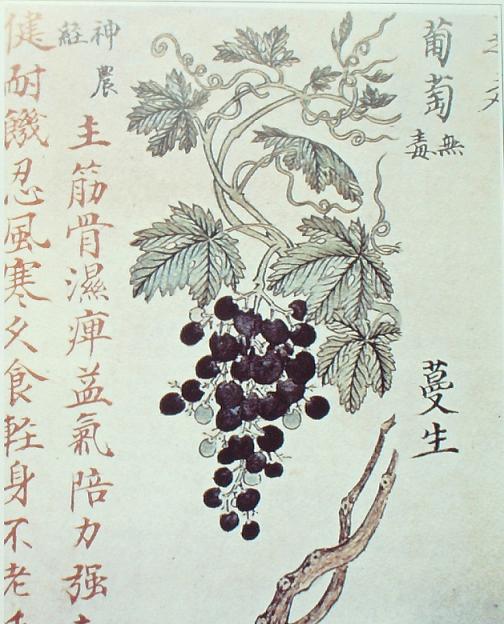 葡萄
無毒
蔓生
神農
経
主筋骨濕痺益氣陪力强
健耐饑忍風寒久食軽身不老